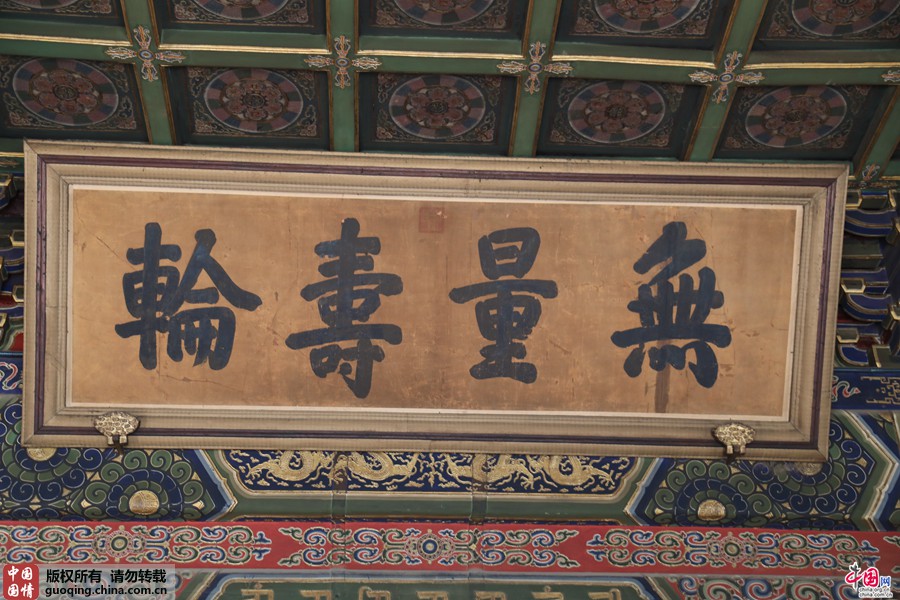 無量壽輪
中国
国情
版权所有 请勿转载
guoqing.china.com.cn
中国网
china.org.cn
china.com.cn